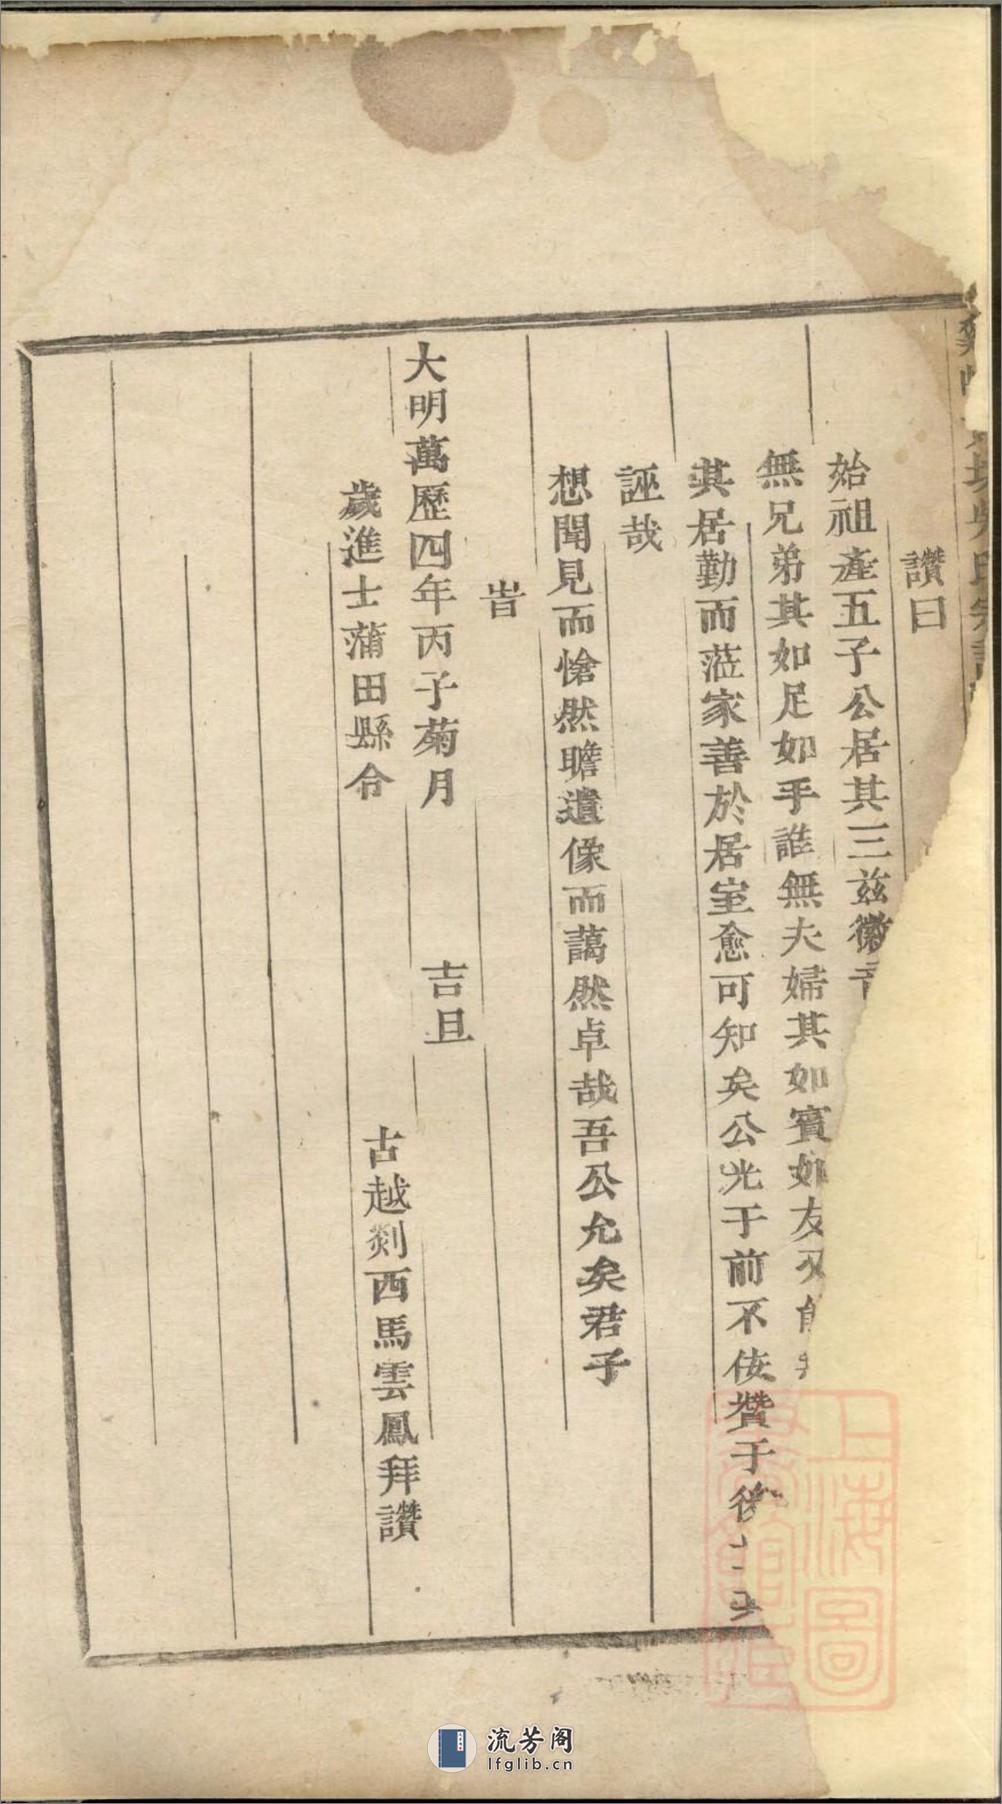 讚曰
始祖產五子公居其三兹徽
無兄弟其如足如手誰無夫婦其如賓如友又
其居勤而蒞家善於居室愈可知矣公光于前不佞攢于後
誣哉
想聞見而愴然瞻遺像而藹然卓哉吾公允矣君子
旹
大明萬歷四年丙子菊月 吉旦
歲進士蒲田縣令 古越剡西馬雲鳳拜讚
上海圖
流芳阁
lfglib.cn